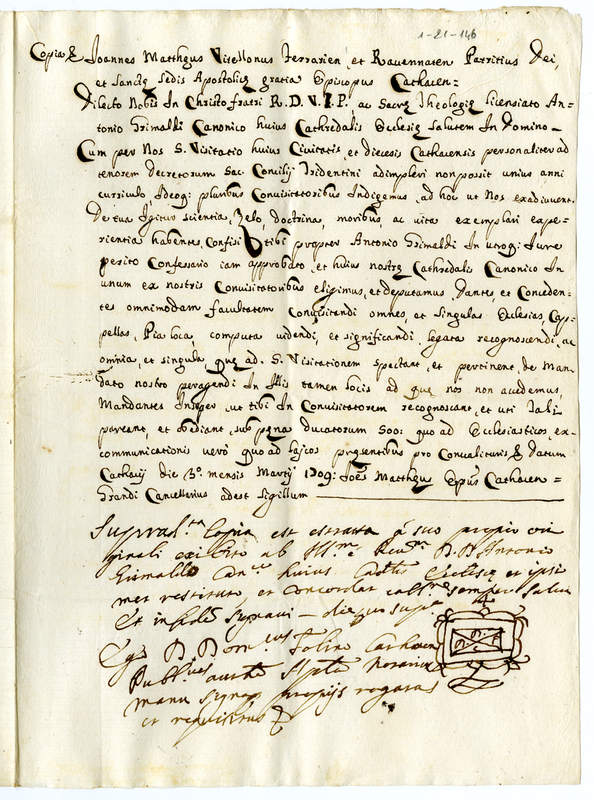 1-21-146
Copia & Joannes Mattheus Vitellonus Ferrarien, et Ravennaten Patritius Dei,
et Sanctę Sedis Apostolicę gratia Episcopus Cathacen=
Dilecto Nobis In Christo fratri R. D. V. I. P. ac Sacrę Theologię licensiato An=
tonio Grimaldi Canonico huius Cathedralis Ecclesię Salutem In Domino
Cum per Nos S. Visitatio huius Civitatis, et diecesis Cathacensis personaliter ad
tenorem decretorum Sac. Concilij Tridentini adimpleri non possit unius anni
curriculo, Ideoq; pluribus Convisitatoribus Indigemus, ad hoc ut Nos exadiuvent.
De tua Igitur scientia, Zelo, doctrina, moribus, ac vita exemplari expe=
rientia habentes, Confisi tibi Antonio Grimaldi In utroq; Iure
perito Confessario iam approbato, et huius nostrę Cathedralis Canonico In
unum ex nostris Convisitatoribus eligimus, et deputamus Dantes, et Conceden=
tes omnimodam facultatem Convisitandi omnes, et singulas Ecclesias, Cap=
pellas, Pia loca, computa videndi, et significandi, legata recognoscendi, ac
omnia, et singula, quę ad S. Visitationem spectant, et pertinent de man=
dato nostro peragendi In Illis tamen locis ad quę nos non accedemus,
Mandantes ut tibi In Convisitatorem recognoscant, et uti tali
pareant, et obediant, sub pęna ducatorum 500: quo ad Ecclesiasticos, ex=
communicationis verò quo ad lajcos pręsentibus pro Convalituris & Datum
Cathacij die 3º mensis Martij 1709: Joes Mattheus Epus Cathacen=
Grandi Cancellerius adest Sigillum
Suprad.ta Copia est estratta à suo proprio ori
ginali exibito ab Ill.mo Reu.mo D. D. Antonio
Grimaldo Can.co huius Ecclesię et ipsi
met restituto et concordat semper salva
Et in fidem Signavi - die
Ego D. D. Folino Cathacen
Publicus Notarius
manu propijs rogatus
et requisitus